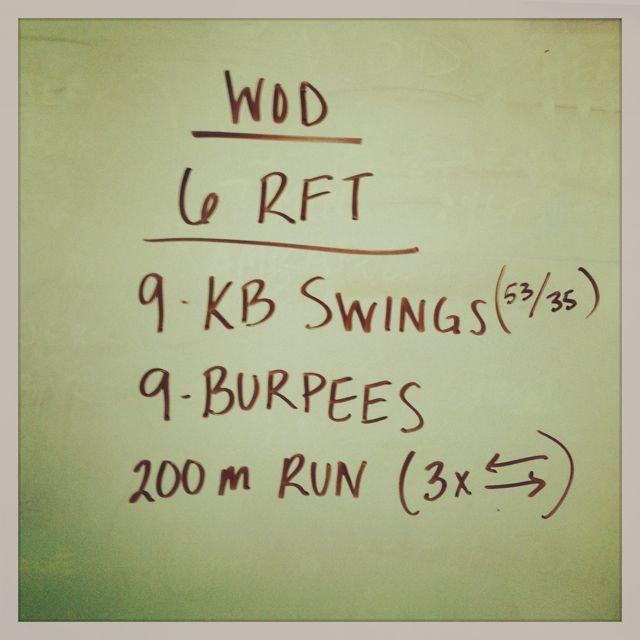 WOD
6 RFT
9-KB SWINGS (53/35)
9-BURPEES
200m RUN (3x ⇆)